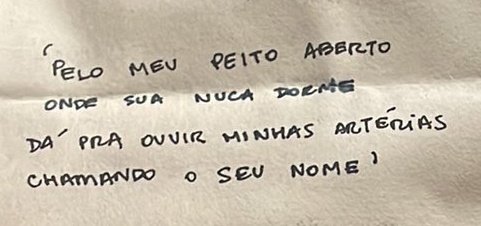 'PELO MEU PEITO ABERTO
ONDE SUA NUCA DORME
DÁ PRA OUVIR MINHAS ARTÉRIAS
CHAMANDO O SEU NOME'